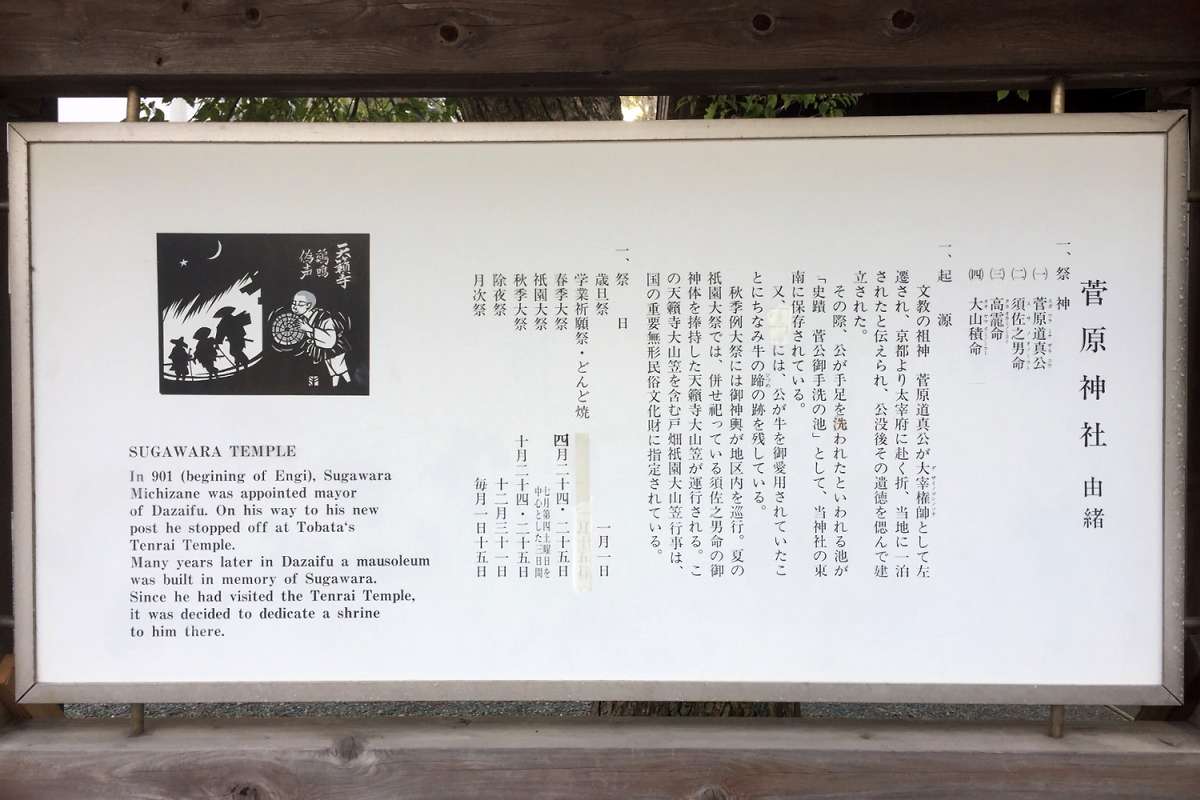 菅原神社 由緒
一、祭神
㈠ 菅原道真公
㈡ 須佐之男命
㈢ 高龗命
㈣ 大山積命
一、起源
文教の祖神 菅原道真公が大宰権帥として左
遷され、京都より太宰府に赴く折、当地に一泊
されたと伝えられ、公没後その遺徳を偲んで建
立された。
その際、公が手足を洗われたといわれる池が
「史蹟 菅公御手洗の池」として、当神社の東
南に保存されている。
又、には、公が牛を御愛用されていたこ
とにちなみ牛の蹄の跡を残している。
秋季例大祭には御神輿が地区内を巡行。夏の
祇園大祭では、併せ祀っている須佐之男命の御
神体を捧持した天籟寺大山笠が運行される。こ
の天籟寺大山笠を含む戸畑祇園大山笠行事は、
国の重要無形民俗文化財に指定されている。
一、祭日
歳旦祭 一月一日
学業祈願祭・どんど焼
春季大祭 四月二十四・二十五日
祇園大祭 七月第四土曜日を
中心とした三日間
秋季大祭 十月二十四・二十五日
除夜祭 十二月三十一日
月次祭 毎月一日十五日
天籟寺
鶏鳴
偽声
SUGAWARA TEMPLE
In 901 (begining of Engi), Sugawara
Michizane was appointed mayor
of Dazaifu. On his way to his new
post he stopped off at Tobata's
Tenrai Temple.
Many years later in Dazaifu a mausoleum
was built in memory of Sugawara.
Since he had visited the Tenrai Temple,
it was decided to dedicate a shrine
to him there.